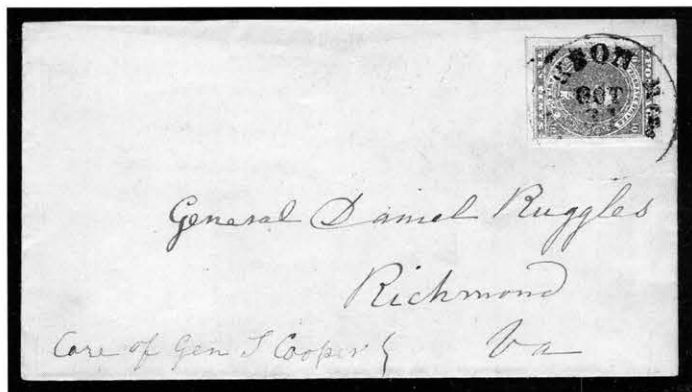 OCT
General Daniel Ruggles
Richmond
Va
Care of Gen S Cooper